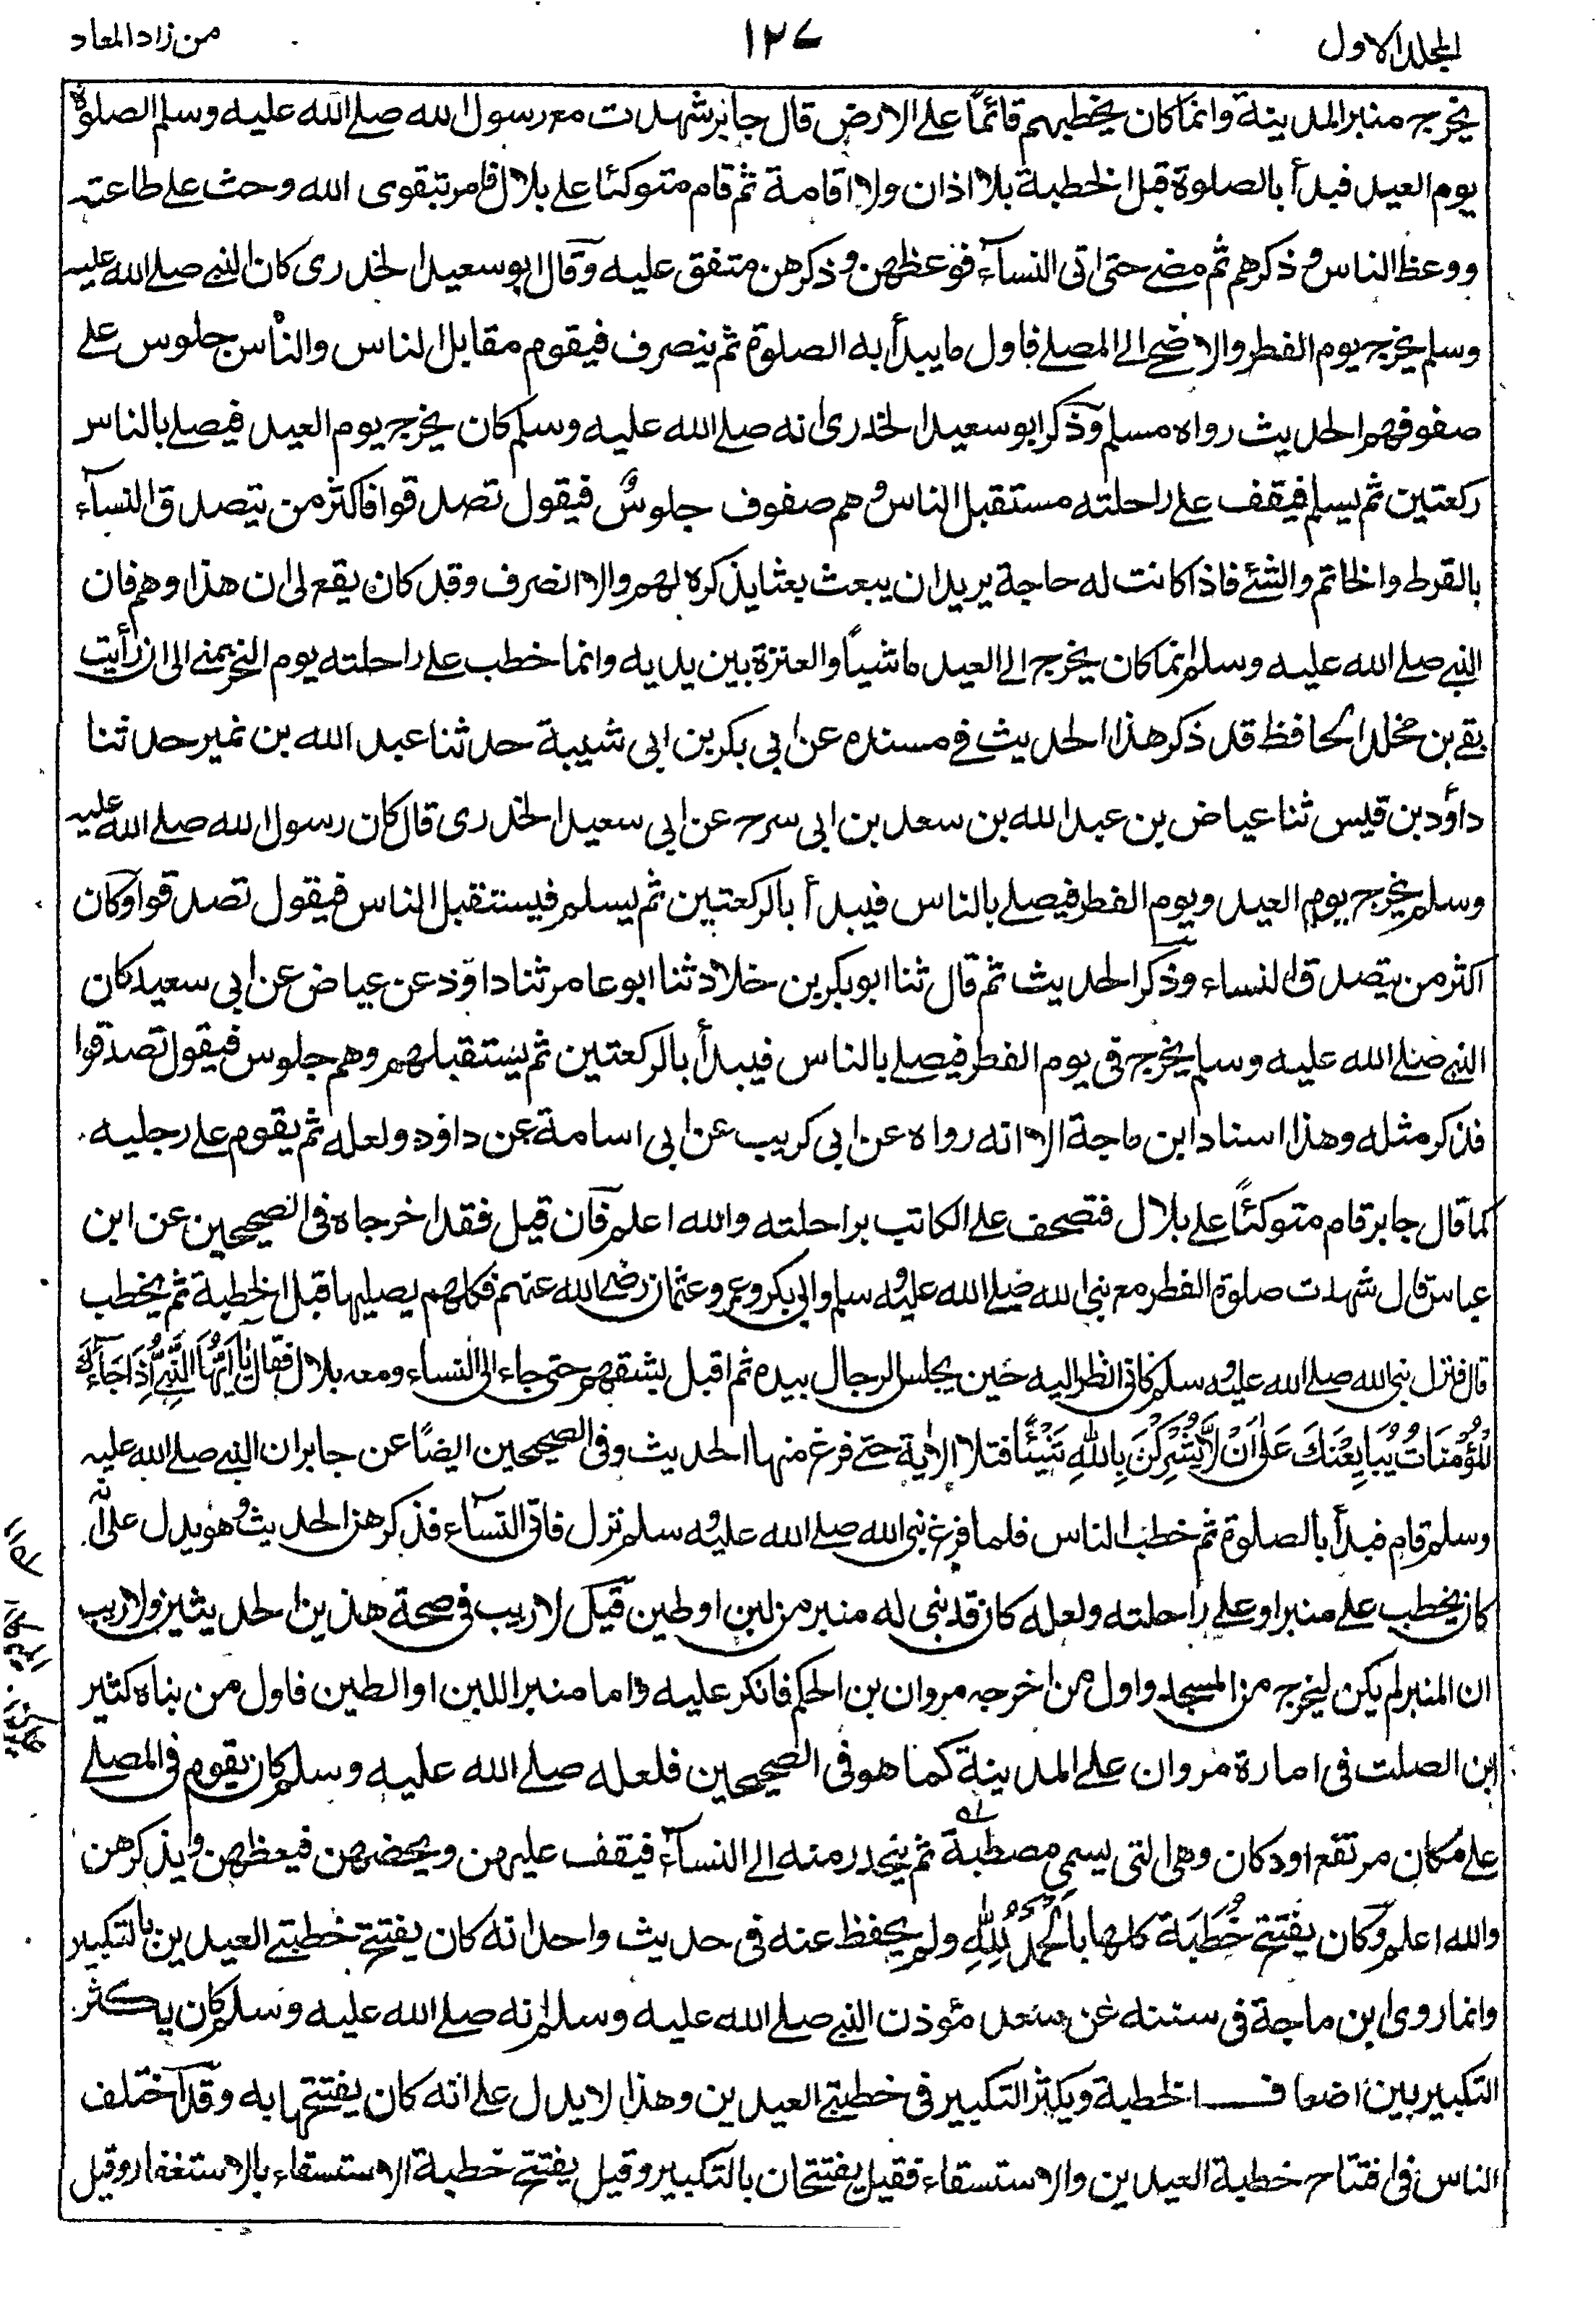 المجلد الاول ١٢٧ من زاد المعاد
يخرج منبر المدينة وانما كان يخطبهم قائمًا على الارض قال جابر شهدت مع رسول الله صلے الله عليه وسلم الصلوة
يوم العيد فبدأ بالصلوة قبل الخطبة بلا اذان ولا اقامة ثم قام متوكئا على بلال فامر بتقوى الله وحث على طاعته
ووعظ الناس وذكرهم ثم مضے حتى اتى النسآء فوعظهن وذكرهن متفق عليه وقال ابو سعيد الخدرى كان النبے صلے الله عليه
وسلم يخرج يوم الفطر والاضحے الے المصلے فاول ما يبدأ به الصلوة ثم ينصرف فيقوم مقابل الناس والناس جلوس علے
صفوفهم الحديث رواه مسلم وذكر ابو سعيد الخدرى انه صلے الله عليه وسلم كان يخرج يوم العيد فيصلے بالناس
ركعتين ثم يسلم فيقف علے راحلته مستقبل الناس وهم صفوف جلوسٌ فيقول تصدقوا فاكثر من يتصدق النسآء
بالقرط والخاتم والشئے فاذا كانت له حاجة يريد ان يبعث بعثا يذكره لهم والا انصرف وقد كان يقع لى ان هذا وهم فان
النبے صلے الله عليه وسلم انما كان يخرج الے العيد ماشياً والعنزة بين يديه وانما خطب علے راحلته يوم النحر بمنے الى ان رأيت
بقے بن مخلد الحافظ قد ذكر هذا الحديث فے مسنده عن ابى بكر بن ابى شيبة حدثنا عبد الله بن نمير حدثنا
داؤد بن قيس ثنا عياض بن عبد الله بن سعد بن ابى سرح عن ابى سعيد الخدرى قال كان رسول الله صلے الله عليه
وسلم يخرج يوم العيد ويوم الفطر فيصلے بالناس فيبدأ بالركعتين ثم يسلم فيستقبل الناس فيقول تصدقوا وكان
اكثر من يتصدق النساء وذكر الحديث ثم قال ثنا ابو بكر بن خلاد ثنا ابو عامر ثنا داؤد عن عياض عن ابى سعيد كان
النبے صلے الله عليه وسلم يخرج فى يوم الفطر فيصلے بالناس فيبدأ بالركعتين ثم يستقبلهم وهم جلوس فيقول تصدقوا
فذكر مثله وهذا اسناد ابن ماجة الا انه رواه عن ابى كريب عن ابى اسامة عن داؤد ولعله ثم يقوم على رجليه
كما قال جابر قام متوكئًا علے بلال فتصحف علے الكاتب براحلته والله اعلم فان قيل فقد اخرجاه فى الصحيحين عن ابن
عباس قال شهدت صلوة الفطر مع نبى الله صلے الله عليه وسلم وابى بكر وعمر وعثمان رضے الله عنهم فكلهم يصليها قبل الخطبة ثم يخطب
قال فنزل نبى الله صلے الله عليه وسلم كانى انظر اليه حين يجلس الرجال بيده ثم اقبل يشقهم حتى جاء الى النساء ومعه بلال فقال يَا اَيُّهَا النَّبِيُّ اِذَا جَآءَكَ
الْمُؤْمِنَاتُ يُبَايِعْنَكَ عَلٰى اَنْ لَّا يُشْرِكْنَ بِاللّٰهِ شَيْئًا فتلا الاية حتے فرغ منها الحديث وفى الصحيحين ايضًا عن جابر ان النبے صلے الله عليه
وسلم قام فبدأ بالصلوة ثم خطب الناس فلما فرغ نبى الله صلے الله عليه وسلم نزل فاتى النسآء فذكرهن الحديث وهو يدل على انه
كان يخطب علے منبر او علے راحلته ولعله كان قد بنى له منبر من لبن او طين قيل لا ريب فى صحة هذين الحديثين ولا ريب
ان المنبر لم يكن ليخرج من المسجد واول من اخرجه مروان بن الحكم فانكر عليه واما منبر اللبن او الطين فاول من بناه كثير
ابن الصلت فى امارة مروان علے المدينة كما هو فى الصحيحين فلعله صلے الله عليه وسلم كان يقوم فى المصلے
علے مكان مرتفع او دكان وهى التى يسمى مصطبة ثم ينحدر منه الے النسآء فيقف عليهن ويحضهن فيعظهن ويذكرهن
والله اعلم وكان يفتتح خُطَبَه كلها بالْحَمْدُ لِلّٰهِ ولم يحفظ عنه فى حديث واحد انه كان يفتتح خطبتے العيدين بالتكبير
وانما روى ابن ماجة فى سننه عن سعد مؤذن النبے صلے الله عليه وسلم انه صلے الله عليه وسلم كان يكثر
التكبير بين اضعاف الخطبة ويكثر التكبير فى خطبتے العيدين وهذا لا يدل علے انه كان يفتتحها به وقد اختلف
الناس فى افتتاح خطبة العيدين والاستسقاء فقيل يفتتحان بالتكبير وقيل يفتتح خطبة الاستسقاء بالاستغفار وقيل